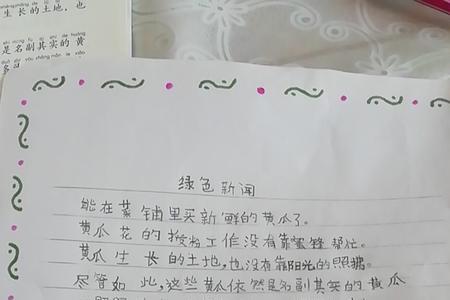 生长的土地，也
是名副其实的黄
绿色新闻
能在菜铺里买新鲜的黄瓜了。
黄瓜花的授粉工作没有靠蜜蜂帮忙。
黄瓜生长的土地,也没有靠阳光的照耀。
尽管如此,这些黄瓜依然是名副其实的黄瓜